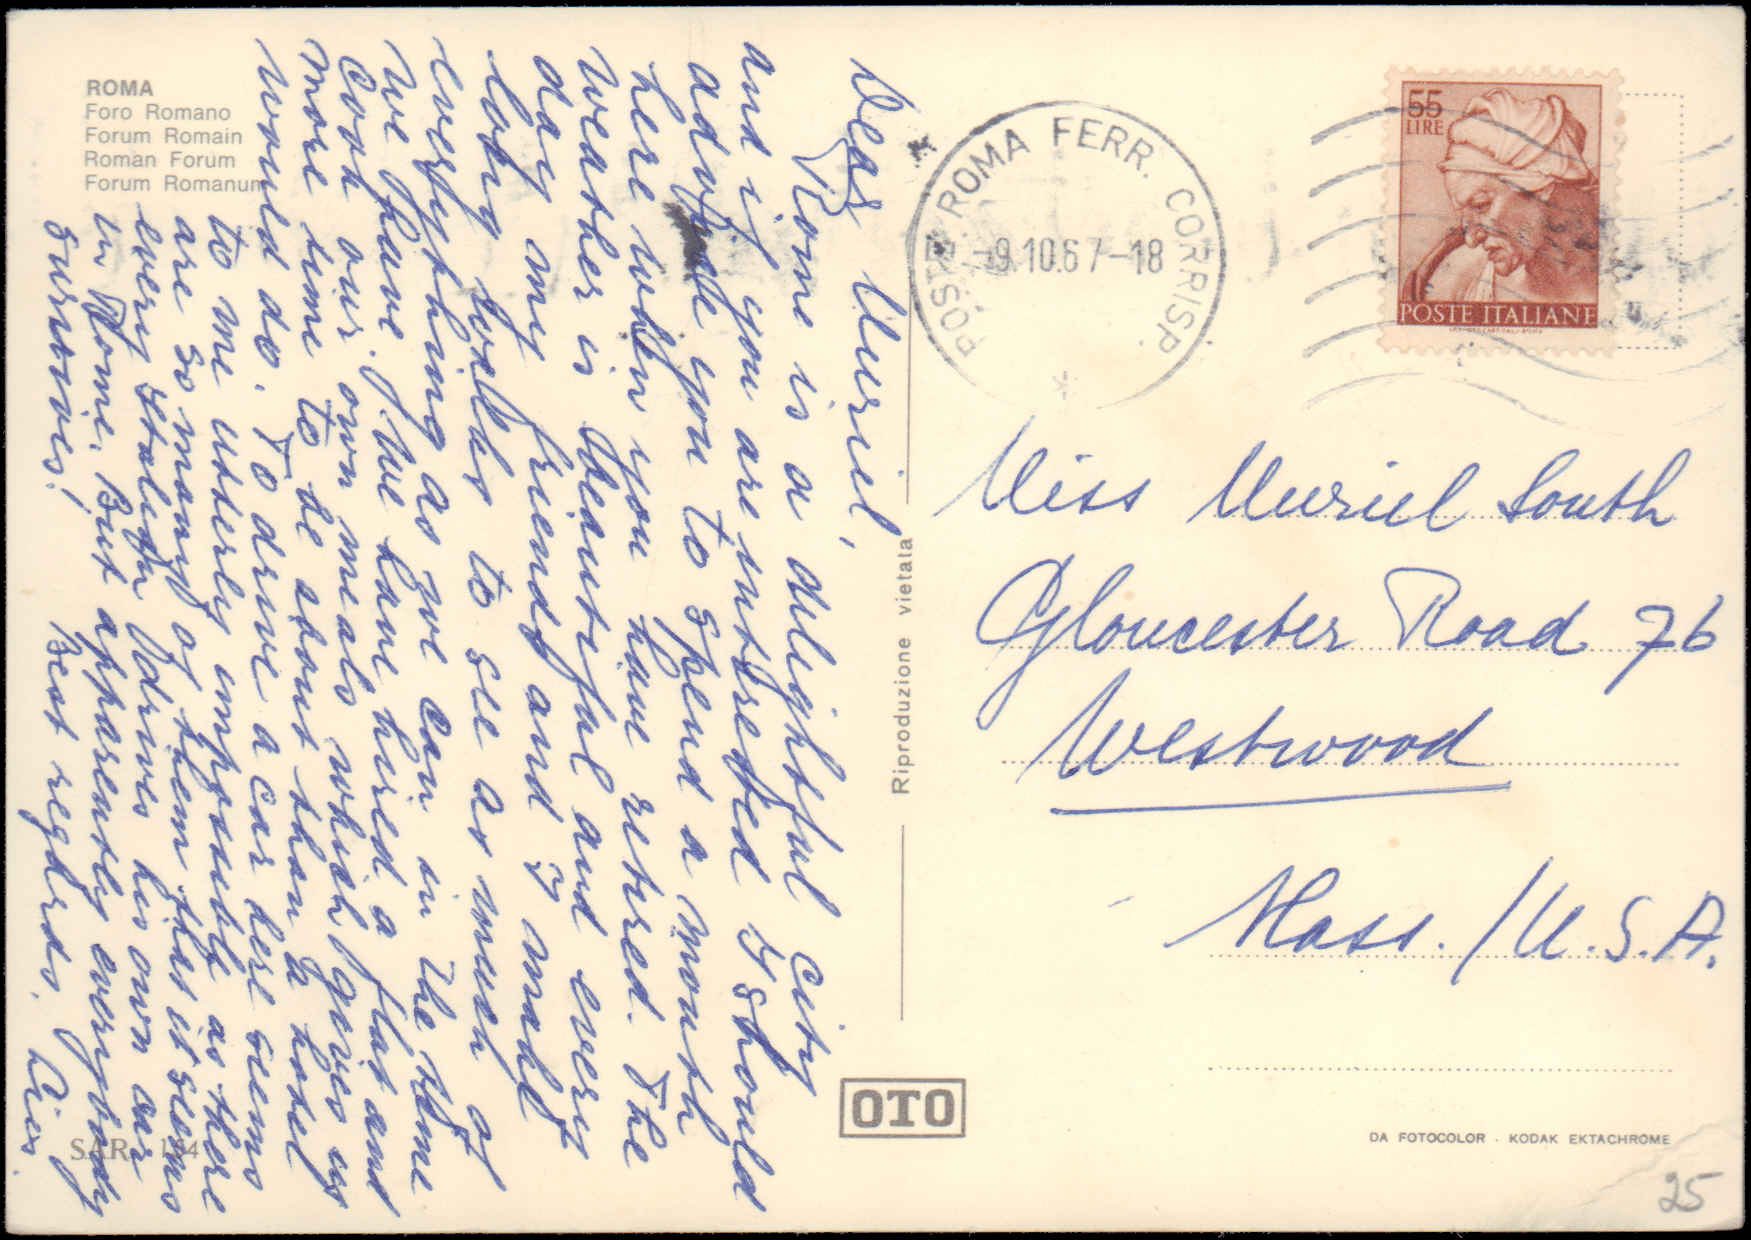 ROMA
Foro Romano
Forum Romain
Roman Forum
Forum Romanum
Dear Muriel,
Rome is a delightful city
and if you are intrested I should
advise you to spend a month
here when you have retired. The
weather is beautiful and every
day my friend and I made
long walks to see as much of
everything as we can in the time
we have. We have hired a flat and
cook our own meals which gives us
more time to be about than a hotel
would do. To drive a car here seems
to me utterly impossible as there
are so many of them that it seems
every Italian drives his own car
in Rome. But apparently everybody
survives!
Best regards.
SAR. 164
Riproduzione vietata
OTO
POSTE ROMA FERR. CORRISP.
-9.10.67-18
55
LIRE
POSTE ITALIANE
Miss Muriel South
Gloucester Road 76
Westwood
Mass. / U.S.A.
DA FOTOCOLOR · KODAK EKTACHROME
25